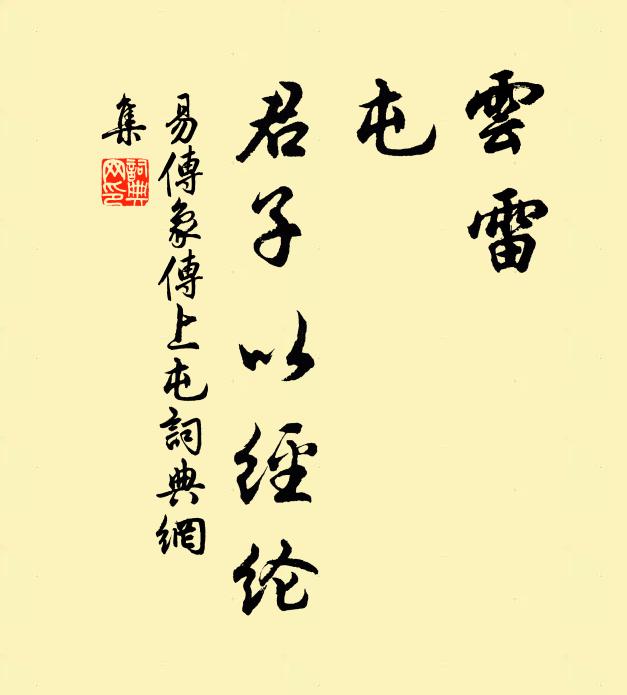 雲雷
屯
君子以經纶
易傳象傳上屯詞典網
集
詞典
网印